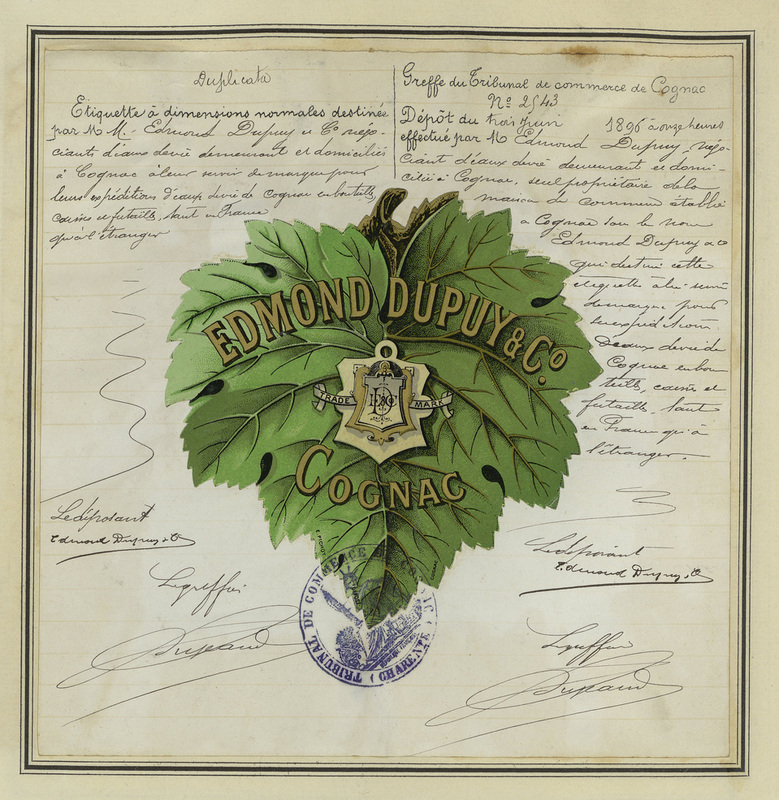 Duplicata
Etiquette à dimensions normales destinée
par M M. Edmond Dupuy et Co négo-
ciants d'eaux de vie demeurant et domiciliés
à Cognac à leur servir de marque pour
leurs expéditions d'eaux de vie de cognac en bouteilles,
caisses et futailles, tant en France
qu'à l'étranger
Le déposant
Edmond Dupuy & Co
Le greffier
Greffe du Tribunal de commerce de Cognac
No 2543
Dépôt du trois Juin 1896 à onze heures
effectué par M Edmond Dupuy, négo-
ciant d'eaux de vie demeurant et domi-
cilié à Cognac, seul propriétaire de la
maison de commerce établie
à Cognac sous le nom
Edmond Dupuy & Co
qui destine cette
étiquette à lui servir
de marque pour
ses expéditions
d'eaux de vie de
Cognac en bou-
teilles, caisses et
futailles, tant
en France qu'à
l'étranger.
Le déposant
Edmond Dupuy & Co
Le greffier
EDMOND DUPUY & Co
TRADE MARK
COGNAC
TRIBUNAL DE COMMERCE DE COGNAC
(CHARENTE)